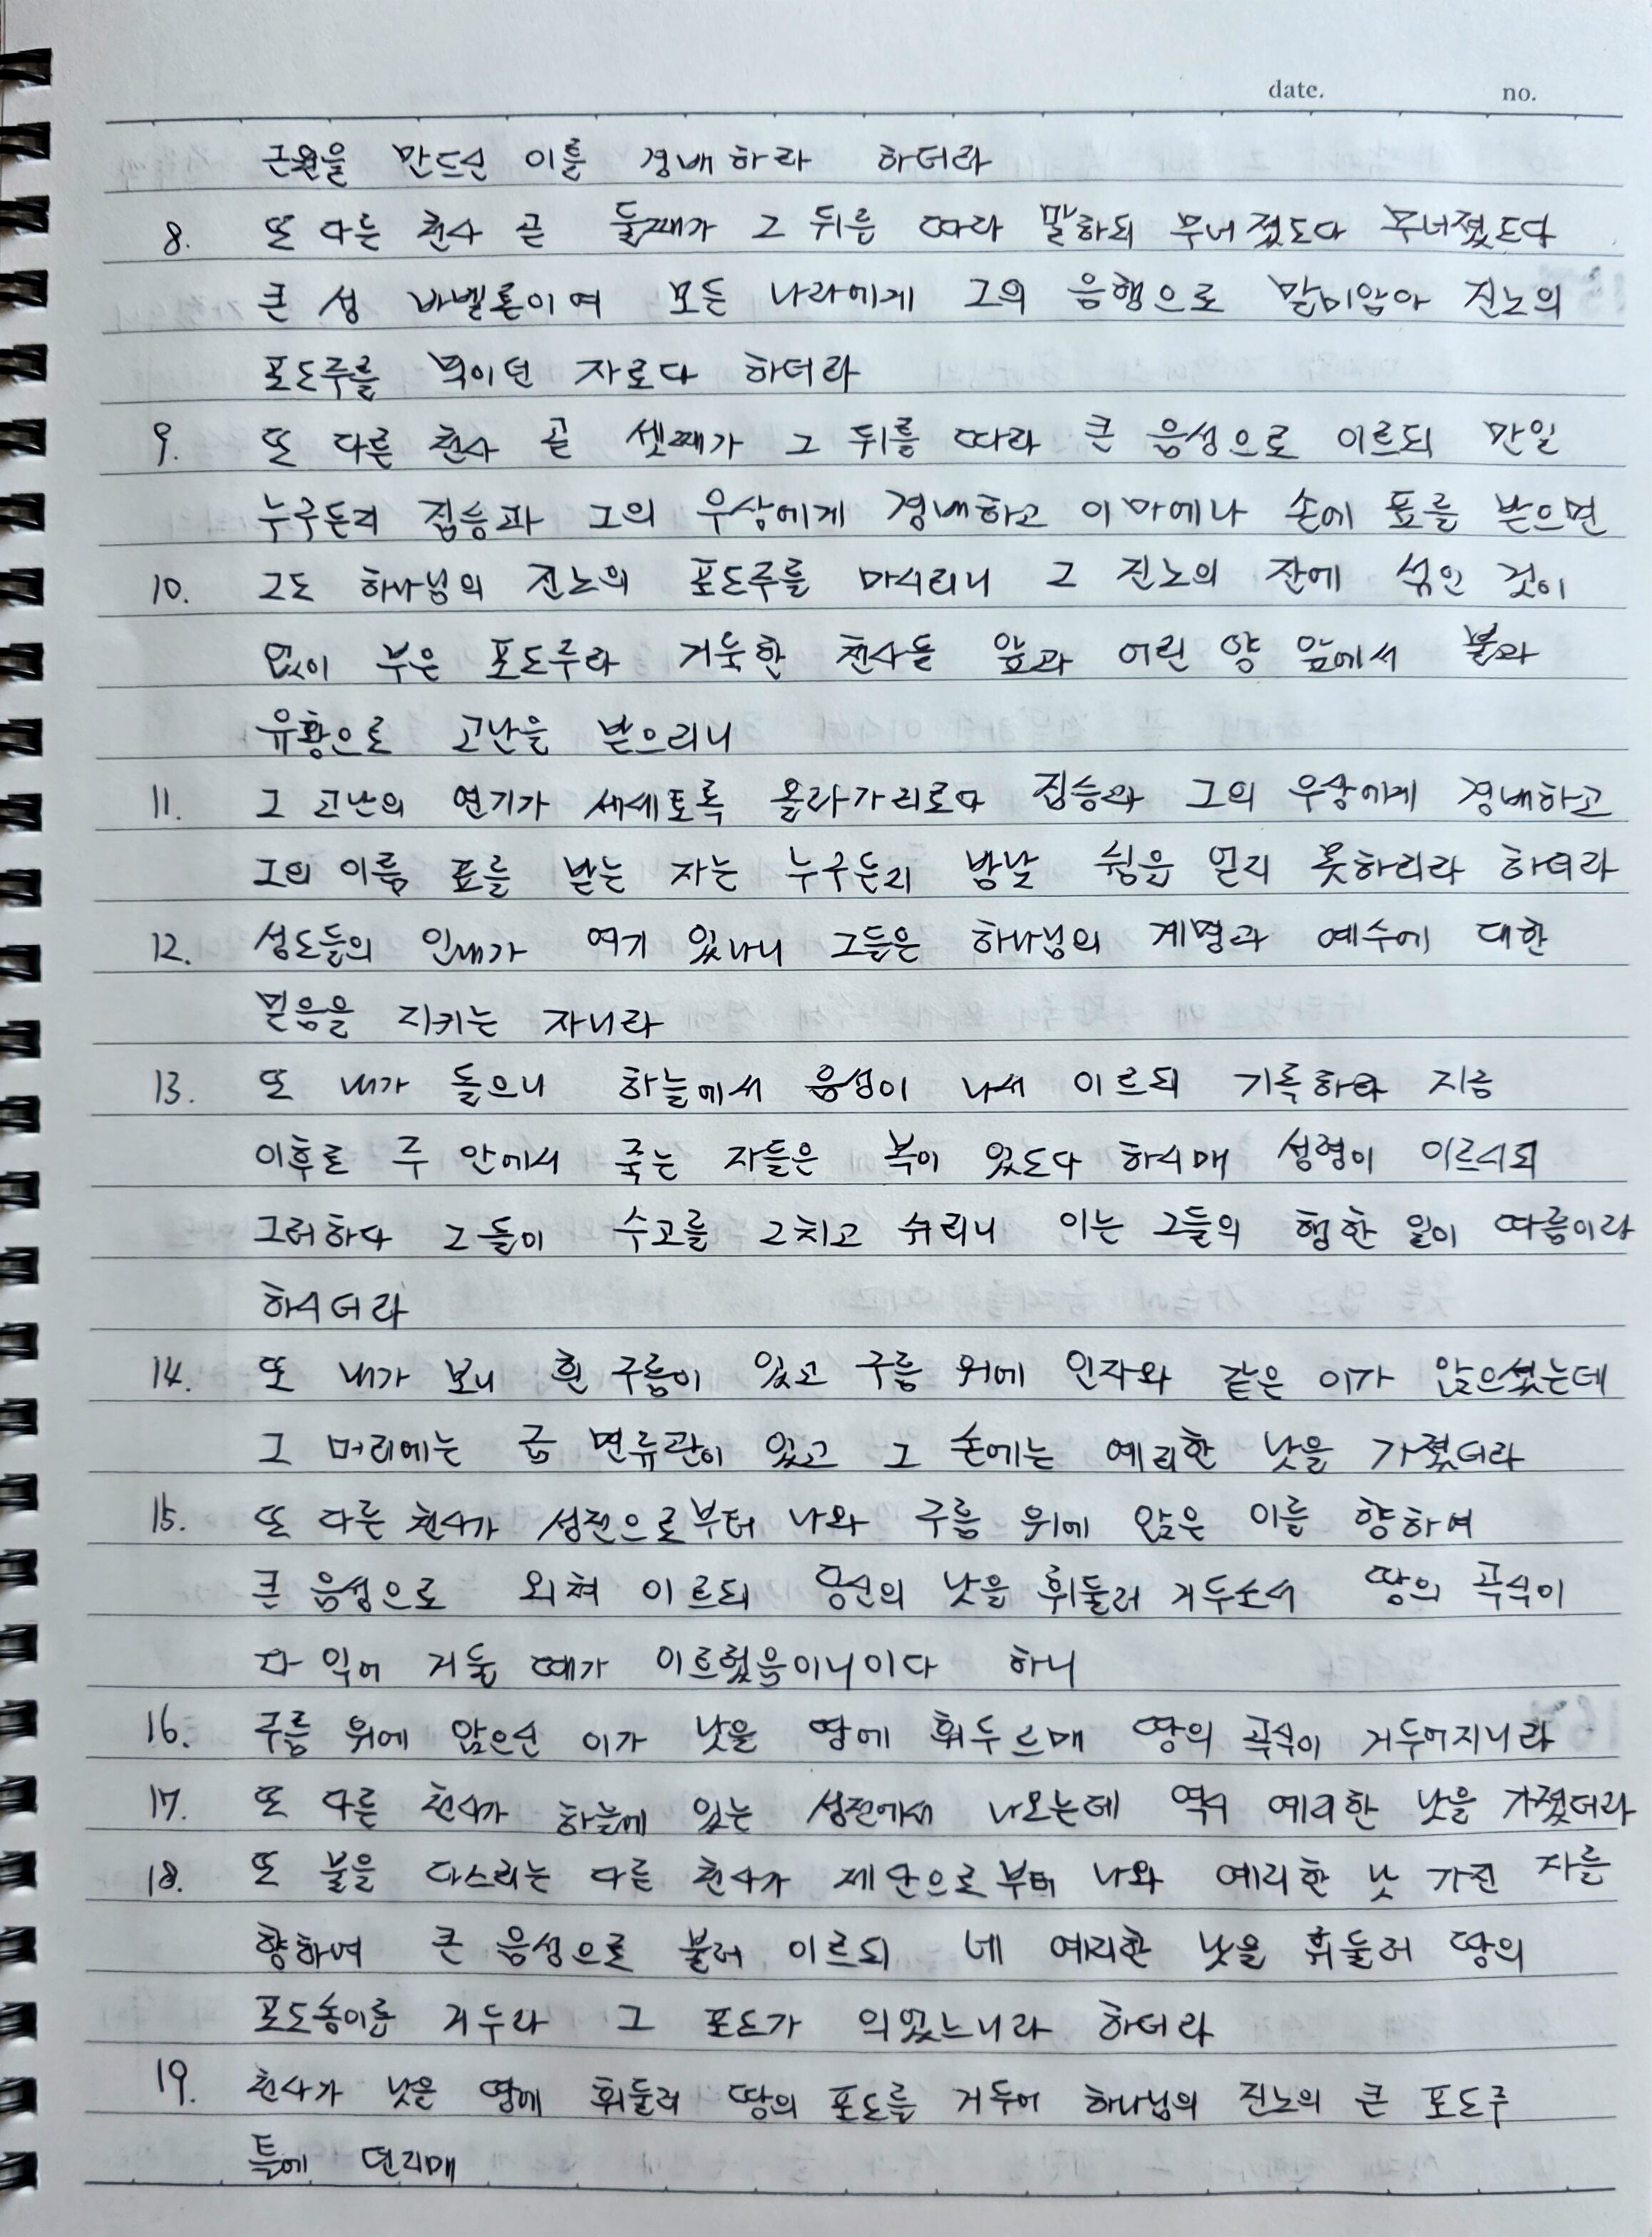 date. no.
근원을 만드신 이를 경배하라 하더라
8. 또 다른 천사 곧 둘째가 그 뒤를 따라 말하되 무너졌도다 무너졌도다
큰 성 바벨론이여 모든 나라에게 그의 음행으로 말미암아 진노의
포도주를 먹이던 자로다 하더라
9. 또 다른 천사 곧 셋째가 그 뒤를 따라 큰 음성으로 이르되 만일
누구든지 짐승과 그의 우상에게 경배하고 이마에나 손에 표를 받으면
10. 그도 하나님의 진노의 포도주를 마시리니 그 진노의 잔에 섞인 것이
없이 부은 포도주라 거룩한 천사들 앞과 어린 양 앞에서 불과
유황으로 고난을 받으리니
11. 그 고난의 연기가 세세토록 올라가리로다 짐승과 그의 우상에게 경배하고
그의 이름 표를 받는 자는 누구든지 밤낮 쉼을 얻지 못하리라 하더라
12. 성도들의 인내가 여기 있나니 그들은 하나님의 계명과 예수에 대한
믿음을 지키는 자니라
13. 또 내가 들으니 하늘에서 음성이 나서 이르되 기록하라 지금
이후로 주 안에서 죽는 자들은 복이 있도다 하시매 성령이 이르시되
그러하다 그들이 수고를 그치고 쉬리니 이는 그들의 행한 일이 따름이라
하시더라
14. 또 내가 보니 흰 구름이 있고 구름 위에 인자와 같은 이가 앉으셨는데
그 머리에는 금 면류관이 있고 그 손에는 예리한 낫을 가졌더라
15. 또 다른 천사가 성전으로부터 나와 구름 위에 앉은 이를 향하여
큰 음성으로 외쳐 이르되 당신의 낫을 휘둘러 거두소서 땅의 곡식이
다 익어 거둘 때가 이르렀음이니이다 하니
16. 구름 위에 앉으신 이가 낫을 땅에 휘두르매 땅의 곡식이 거두어지니라
17. 또 다른 천사가 하늘에 있는 성전에서 나오는데 역시 예리한 낫을 가졌더라
18. 또 불을 다스리는 다른 천사가 제단으로부터 나와 예리한 낫 가진 자를
향하여 큰 음성으로 불러 이르되 네 예리한 낫을 휘둘러 땅의
포도송이를 거두라 그 포도가 익었느니라 하더라
19. 천사가 낫을 땅에 휘둘러 땅의 포도를 거두어 하나님의 진노의 큰 포도주
틀에 던지매